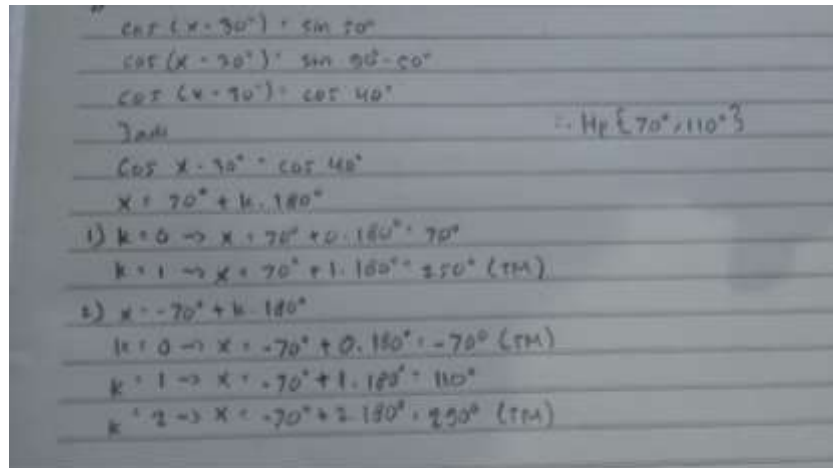 cos (x - 30°) = sin 50°
cos (x - 30°) = sin 90° - 50°
cos (x - 30°) = cos 40°
Jadi
∴ Hp {70°, 110°}
cos x - 30° = cos 40°
x = 70° + k. 180°
1) k = 0 → x = 70° + 0. 180° = 70°
k = 1 → x = 70° + 1. 180° = 250° (TM)
2) x = -70° + k. 180°
k = 0 → x = -70° + 0. 180° = -70° (TM)
k = 1 → x = -70° + 1. 180° = 110°
k = 2 → x = -70° + 2. 180° = 290° (TM)